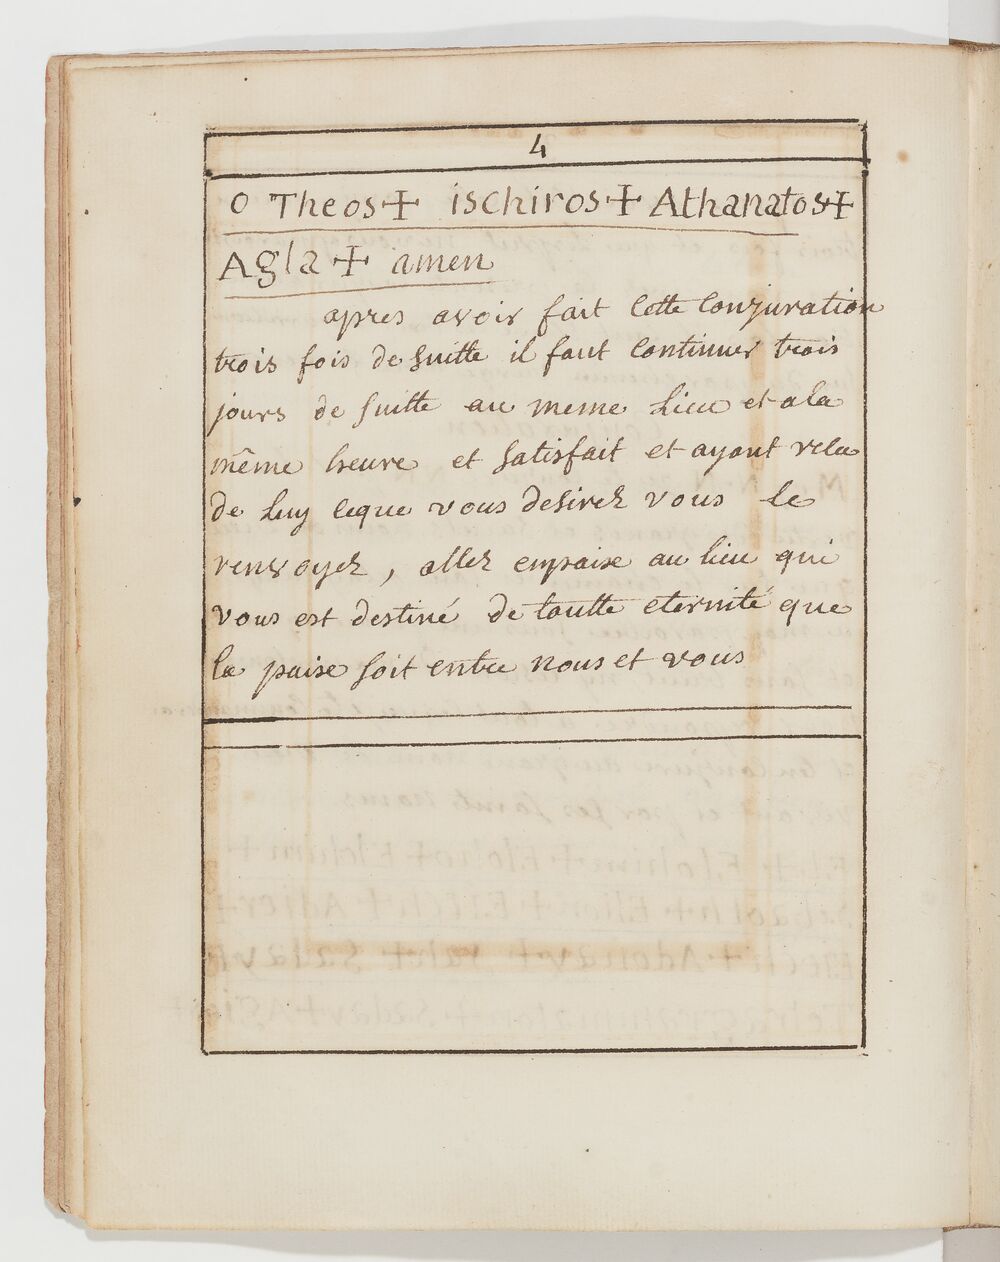 4
O Theos + ischiros + Athanatos +
Agla + amen
apres avoir fait cette Conjuration
trois fois de suitte il faut continuer trois
jours de suitte au meme Lieu et a la
même heure et satisfait et ayant
de luy ceque vous desirez vous le
renvoyez, allez enpaise au lieu qui
vous est destiné de toutte eternité que
la paise soit entre nous et vous